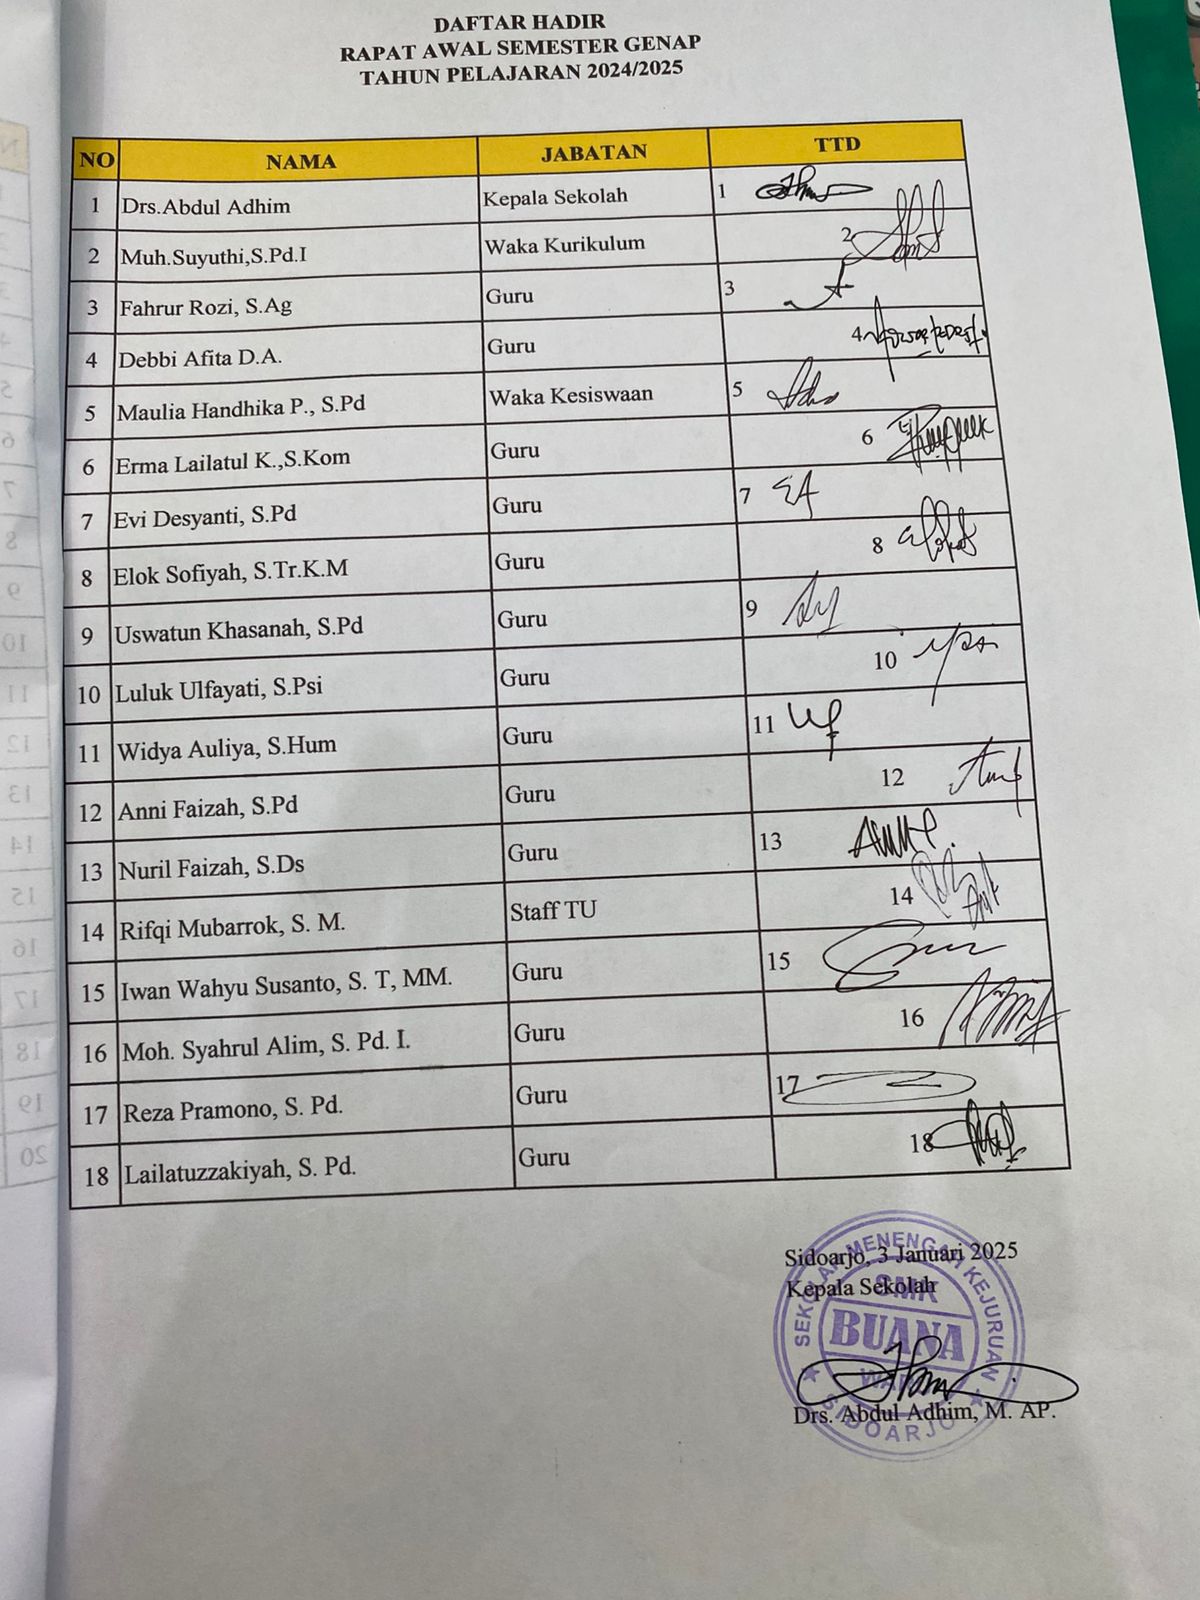 DAFTAR HADIR
RAPAT AWAL SEMESTER GENAP
TAHUN PELAJARAN 2024/2025
NO NAMA JABATAN TTD
1 Drs.Abdul Adhim Kepala Sekolah 1
2 Muh.Suyuthi,S.Pd.I Waka Kurikulum 2
3 Fahrur Rozi, S.Ag Guru 3
4 Debbi Afita D.A. Guru 4
5 Maulia Handhika P., S.Pd Waka Kesiswaan 5
6 Erma Lailatul K.,S.Kom Guru 6
7 Evi Desyanti, S.Pd Guru 7
8 Elok Sofiyah, S.Tr.K.M Guru 8
9 Uswatun Khasanah, S.Pd Guru 9
10 Luluk Ulfayati, S.Psi Guru 10
11 Widya Auliya, S.Hum Guru 11
12 Anni Faizah, S.Pd Guru 12
13 Nuril Faizah, S.Ds Guru 13
14 Rifqi Mubarrok, S. M. Staff TU 14
15 Iwan Wahyu Susanto, S. T, MM. Guru 15
16 Moh. Syahrul Alim, S. Pd. I. Guru 16
17 Reza Pramono, S. Pd. Guru 17
18 Lailatuzzakiyah, S. Pd. Guru 18
Sidoarjo, 3 Januari 2025
Kepala Sekolah
SEKOLAH MENENGAH KEJURUAN
SMK
BUANA
SIDOARJO
Drs. Abdul Adhim, M. AP.